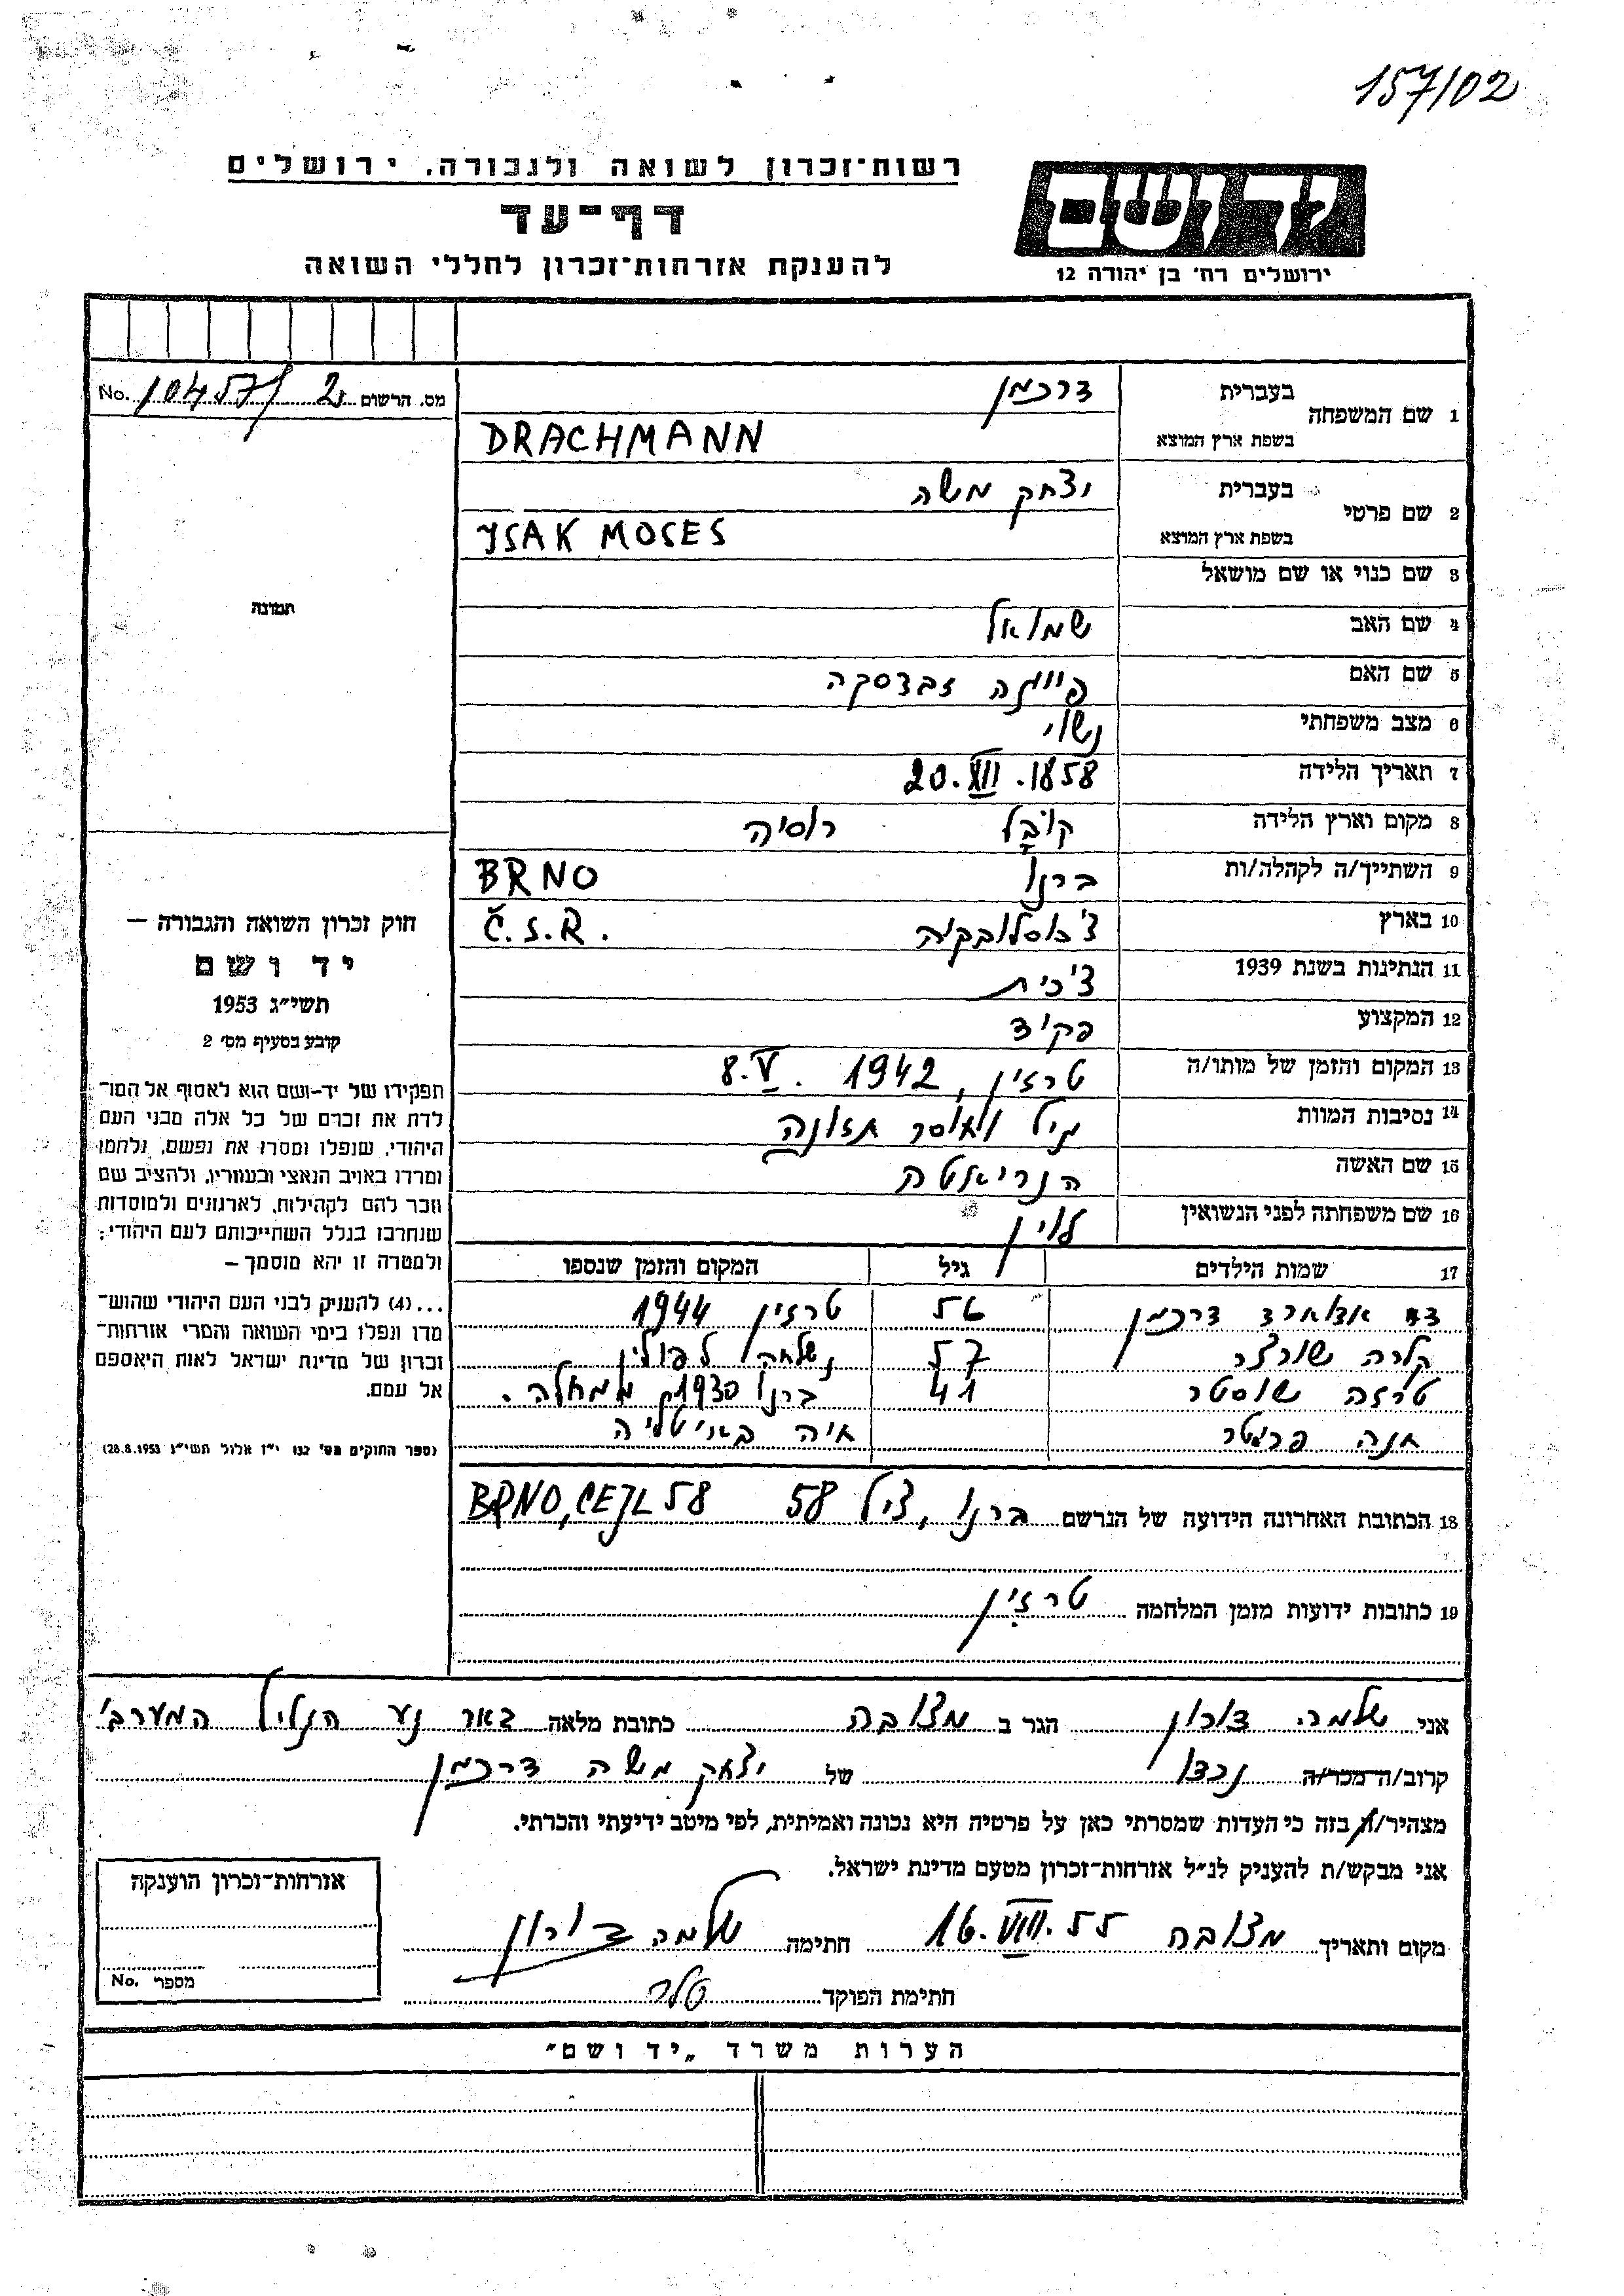 157/02
רשות־זכרון לשואה ולגבורה, ירושלים
דף־עד
להענקת אזרחות־זכרון לחללי השואה
יד ושם
ירושלים רח׳ בן יהודה 12
מס. הרשום 2 10457/ No.
1 שם המשפחה
בעברית דרכמן
בשפת ארץ המוצא DRACHMANN
2 שם פרטי
בעברית יצחק משה
בשפת ארץ המוצא YSAK MOSES
3 שם כנוי או שם מושאל
4 שם האב שמואל
5 שם האם פייגה זבדסקה
6 מצב משפחתי נשוי
7 תאריך הלידה 20.XII.1858
8 מקום וארץ הלידה קובל רוסיה
9 השתייך/ה לקהלה/ות ברנו BRNO
10 בארץ צ׳כוסלובקיה Č.S.R.
11 הנתינות בשנת 1939 צ׳כית
12 המקצוע פקיד
13 המקום והזמן של מותו/ה טרזין, 8.V. 1942
14 נסיבות המוות תזונה
15 שם האשה הנריאטה
16 שם משפחתה לפני הנשואין לוין
17 שמות הילדים גיל המקום והזמן שנספו
דר אדוארד דרכמן 56 טרזין 1944
קלרה שורצר 57 נשלחה לפולין
טרזה שוסטר 41 ברנו 1930 ממחלה.
אנה איה באיטליה
18 הכתובת האחרונה הידועה של הנרשם ברנו, ציל 58 BRNO, CEJL 58
19 כתובות ידועות מזמן המלחמה טרזין
תמונה
חוק זכרון השואה והגבורה –
יד ושם
תשי״ג 1953
קובע בסעיף מס׳ 2
תפקידו של יד-ושם הוא לאסוף אל המו־
לדת את זכרם של כל אלה מבני העם
היהודי, שנפלו ומסרו את נפשם, נלחמו
ומרדו באויב הנאצי ובעוזריו, ולהציב שם
וזכר להם לקהילות, לארגונים ולמוסדות
שנחרבו בגלל השתייכותם לעם היהודי;
ולמטרה זו יהא מוסמך –
...(4) להעניק לבני העם היהודי שהוש־
מדו ונפלו בימי השואה והמרי אזרחות־
זכרון של מדינת ישראל לאות היאספם
אל עמם.
(ספר החוקים מס׳ 132 י״ז אלול תשי״ג 28.8.1953)
אני שלמה דורון הגר ב מצובה כתובת מלאה דאר נע הגליל המערבי
קרוב/ה מכר/ה נכדו של יצחק משה דרכמן
מצהיר/ה בזה כי העדות שמסרתי כאן על פרטיה היא נכונה ואמיתית, לפי מיטב ידיעתי והכרתי.
אני מבקש/ת להעניק לנ״ל אזרחות־זכרון מטעם מדינת ישראל.
מקום ותאריך מצובה 16.VIII.55 חתימה שלמה דורון
חתימת הפוקד
אזרחות־זכרון הוענקה
מספר No.
הערות משרד „יד ושם״